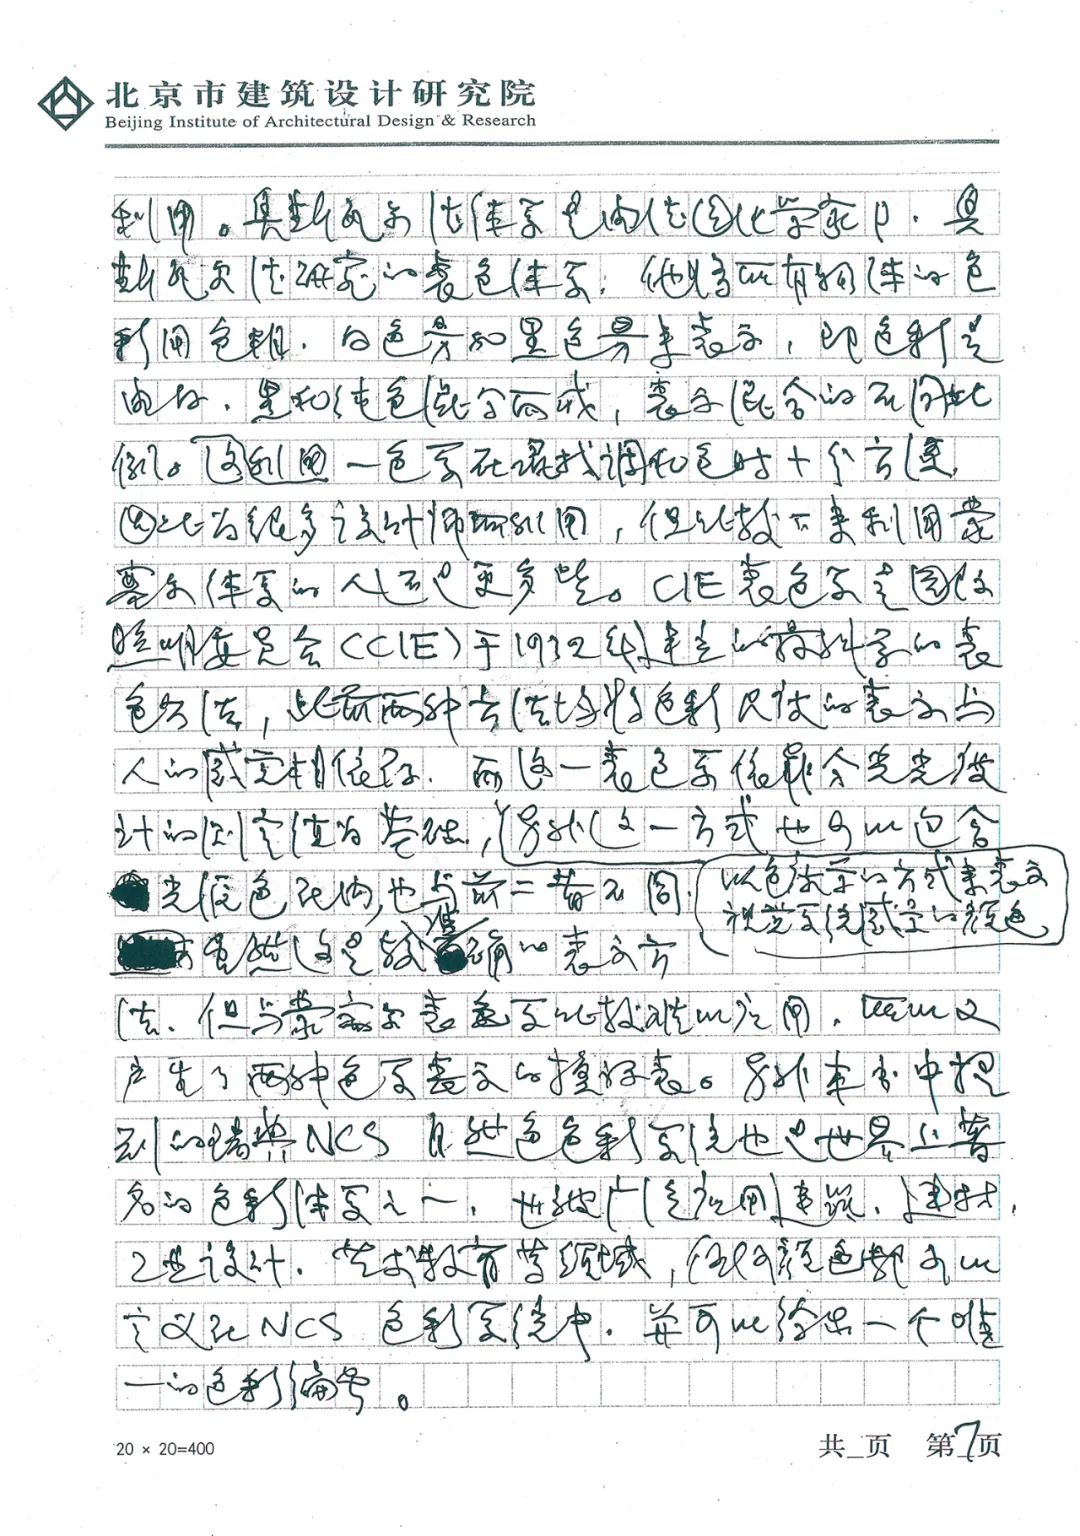 北京市建筑设计研究院
Beijing Institute of Architectural Design & Research
利用。奥斯瓦尔德体系是由德国化学家W·奥
斯瓦尔德研究的表色体系,他将所有物体的色
彩用色相、白色量和黑色量来表示,即色彩是
由白、黑和纯色混合而成,表示混合的不同比
例。这利用一色系在寻找调和色时十分方便,
因此为很多设计师所利用,但比较下来利用蒙
塞尔体系的人还是更多些。CIE表色系是国际
照明委员会(CIE)于1932年建立的最科学的表
色方法,此前两种方法均将色彩尺度的表示与
人的感觉相依存,而这一表色系依靠分光光度
计的测定值为基础,另外这一方式也可以包含
光源色在内,也与前二者不同,
以色度学的方式来表示
视觉系统感受的颜色
虽然这是较准确的表示方
法,但与蒙塞尔表色系比较难以应用,所以又
产生了两种色系表示的换算表。另外本书中提
到的瑞典NCS自然色色彩系统也是世界上著
名的色彩体系之一,也被广泛应用建筑、建材、
工业设计、艺术教育等领域,任何颜色都可以
定义在NCS色彩系统中,并可以给出一个唯
一的色彩编号。
20 × 20=400
共_页 第7页